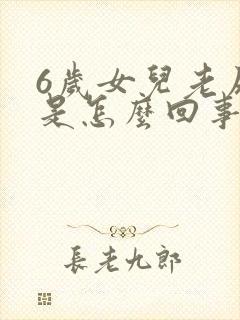 6歲女兒老尿
是怎麼回事
長老九郎